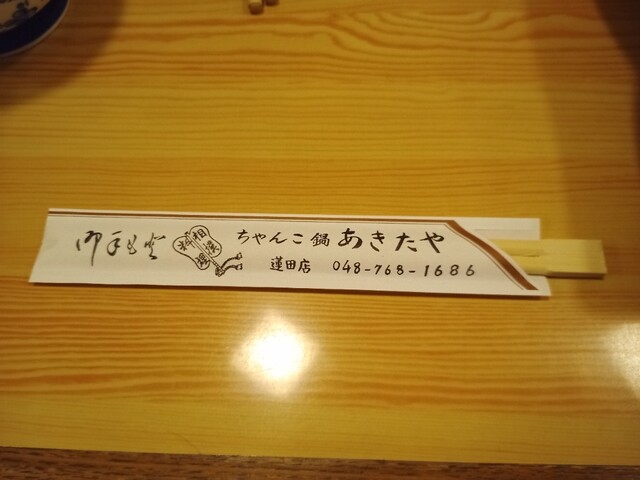 御手もと
相撲
料理
ちゃんこ鍋 あきたや
蓮田店 048-768-1686